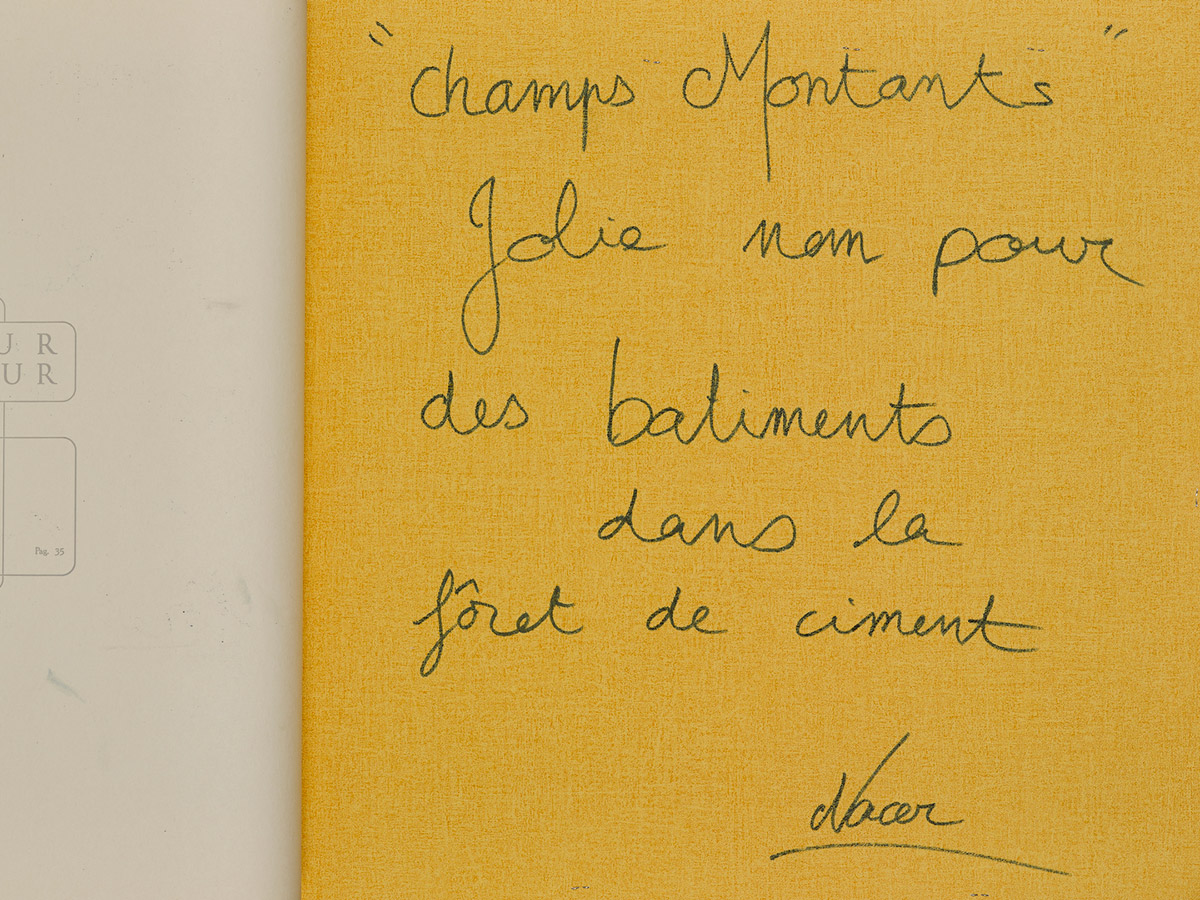 U R
U R
Pag. 35
"champs Montants"
Jolie nom pour
des batiments
dans la
fôret de ciment
Nacer